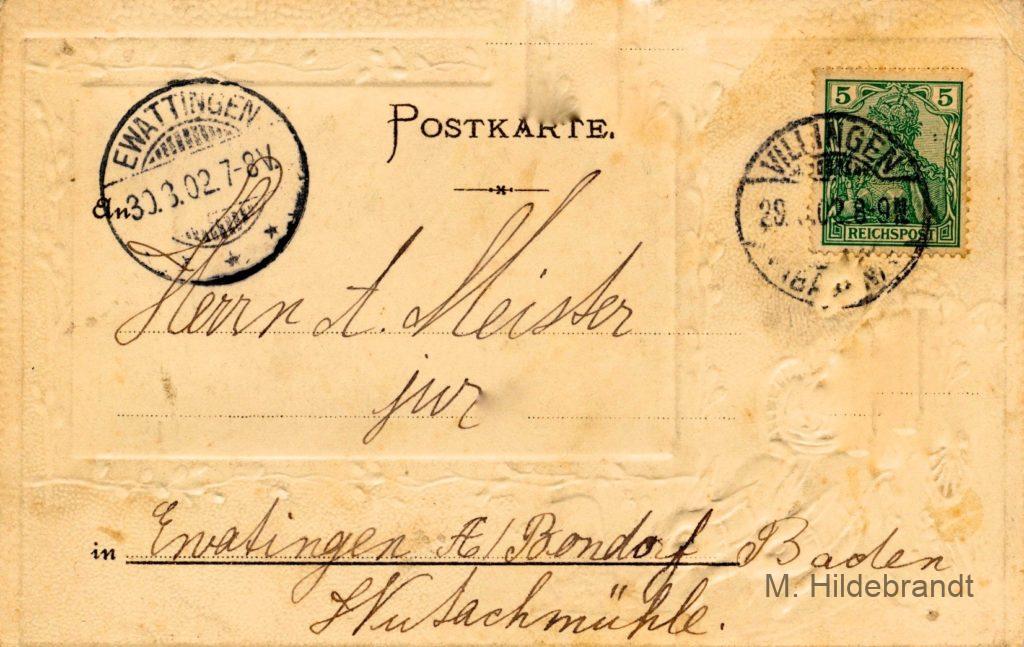 POSTKARTE.
EWATTINGEN
30.3.02.7-8V.
5 5
REICHSPOST
VILLINGEN
29. .02.8-9N
An
Herrn A. Meister
jur
in Ewatingen A/Bondorf Baden
Wutachmühle.
M. Hildebrandt